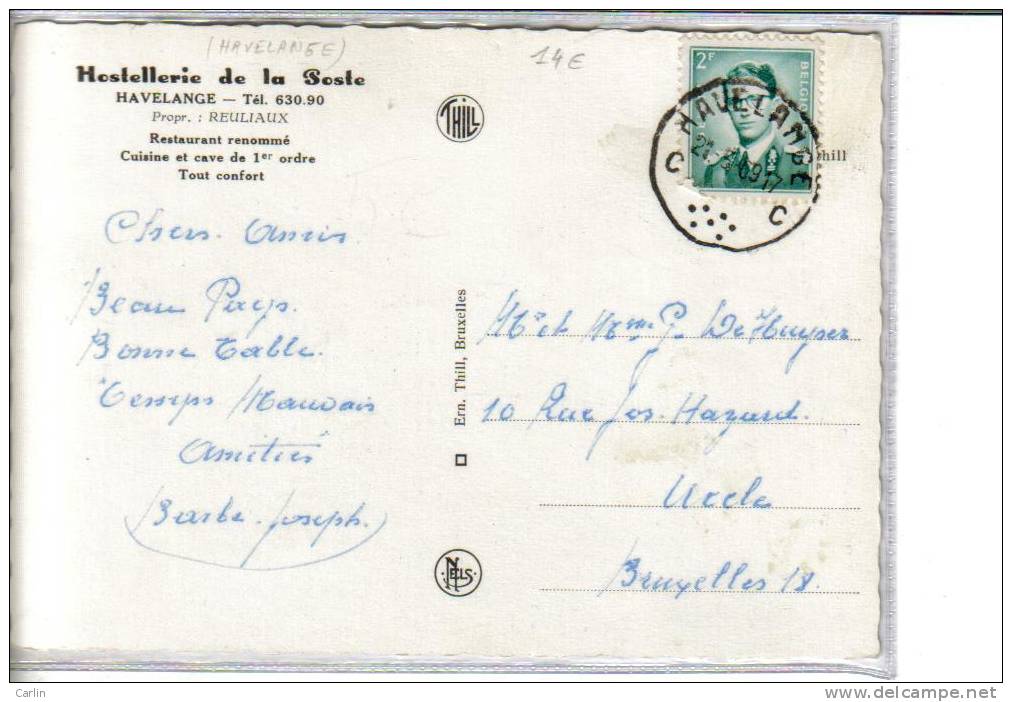 (HAVELANGE)
14€
Hostellerie de la Poste
HAVELANGE — Tél. 630.90
Propr. : REULIAUX
Restaurant renommé
Cuisine et cave de 1er ordre
Tout confort
THILL
2F
BELGIQ
HAVELANGE
C C
hill
Chers Amis
Beau Pays.
Bonne Table.
Temps Mauvais
Amitiés
Barbe-Joseph.
Ern. Thill, Bruxelles
NELS
Mr et Mme P. De Kuyper
10 Rue Jos. Hazard.
Uccle
Bruxelles 18.
Carlin
www.delcampe.net